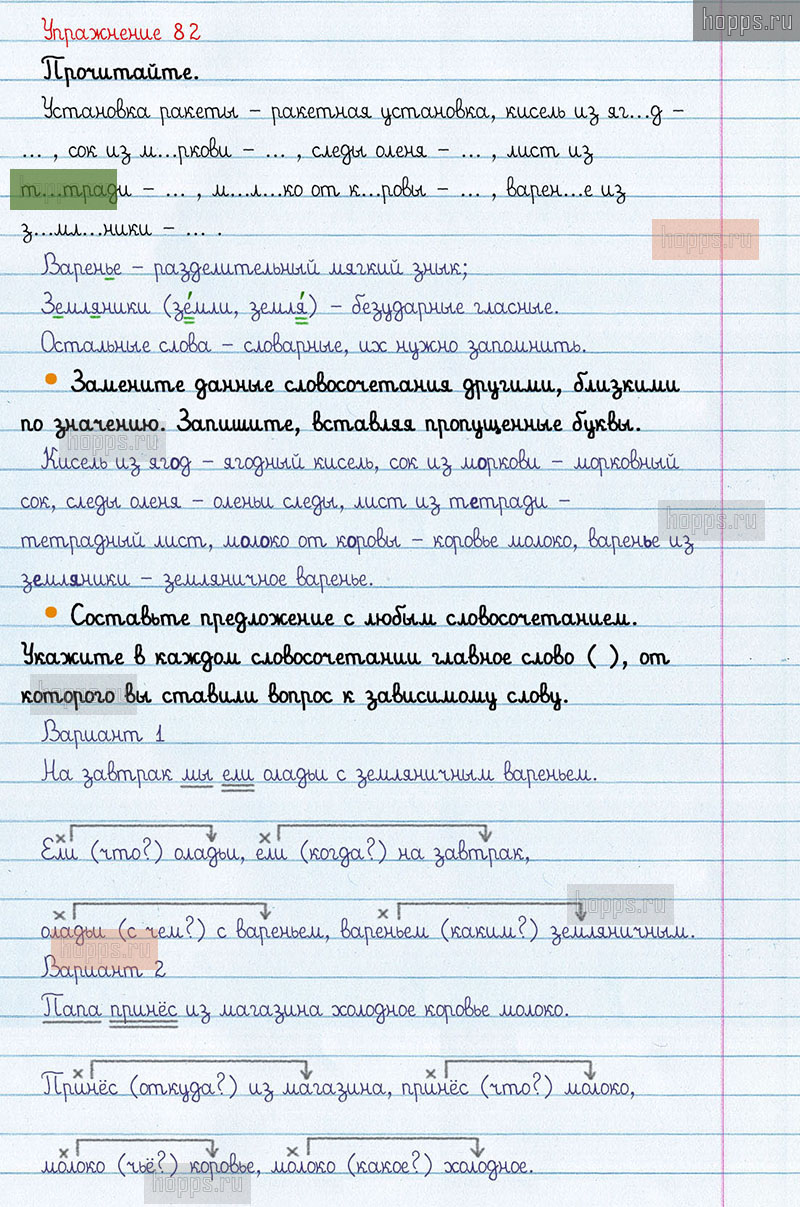 hopps.ru
Упражнение 82
Прочитайте.
Установка ракеты – ракетная установка, кисель из яг...д –
... , сок из м...ркови – ... , следы оленя – ... , лист из
т...тради – ... , м...л...ко от к...ровы – ... , варен...е из
з...мл...ники – ... .
hopps.ru
Варенье – разделительный мягкий знык;
Земляники (зе́мли, земля́) – безударные гласные.
Остальные слова – словарные, их нужно запомнить.
• Замените данные словосочетания другими, близкими
по значению. Запишите, вставляя пропущенные буквы.
hopps.ru
Кисель из ягод – ягодный кисель, сок из моркови – морковный
сок, следы оленя – оленьи следы, лист из тетради –
hopps.ru
тетрадный лист, молоко от коровы – коровье молоко, варенье из
земляники – земляничное варенье.
• Составьте предложение с любым словосочетанием.
Укажите в каждом словосочетании главное слово ( ), от
которого вы ставили вопрос к зависимому слову.
Вариант 1
На завтрак мы ели оладьи с земляничным вареньем.
Ели (что?) оладьи, ели (когда?) на завтрак,
hopps.ru
оладьи (с чем?) с вареньем, вареньем (каким?) земляничным.
hopps.ru
Вариант 2
Папа принёс из магазина холодное коровье молоко.
Принёс (откуда?) из магазина, принёс (что?) молоко,
молоко (чьё?) коровье, молоко (какое?) холодное.
hopps.ru